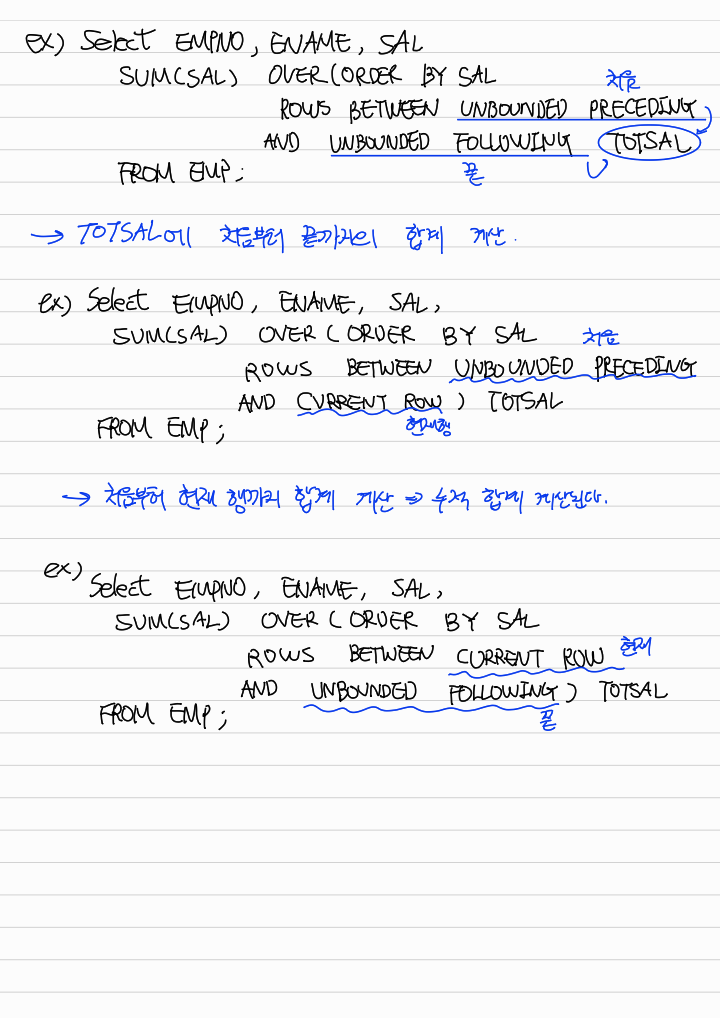 ex) Select EMPNO, ENAME, SAL
SUM(SAL) OVER(ORDER BY SAL
처음
ROWS BETWEEN UNBOUNDED PRECEDING
AND UNBOUNDED FOLLOWING TOTSAL
FROM EMP;
끝
→ TOTSAL에 처음부터 끝까지의 합계 계산.
ex) Select EMPNO, ENAME, SAL,
SUM(SAL) OVER (ORDER BY SAL
처음
ROWS BETWEEN UNBOUNDED PRECEDING
AND CURRENT ROW) TOTSAL
FROM EMP;
현재행
→ 처음부터 현재 행까지 합계 계산 ⇒ 누적 합계 계산된다.
ex)
Select EMPNO, ENAME, SAL,
SUM(SAL) OVER (ORDER BY SAL
ROWS BETWEEN CURRENT ROW 현재
AND UNBOUNDED FOLLOWING) TOTSAL
FROM EMP;
끝